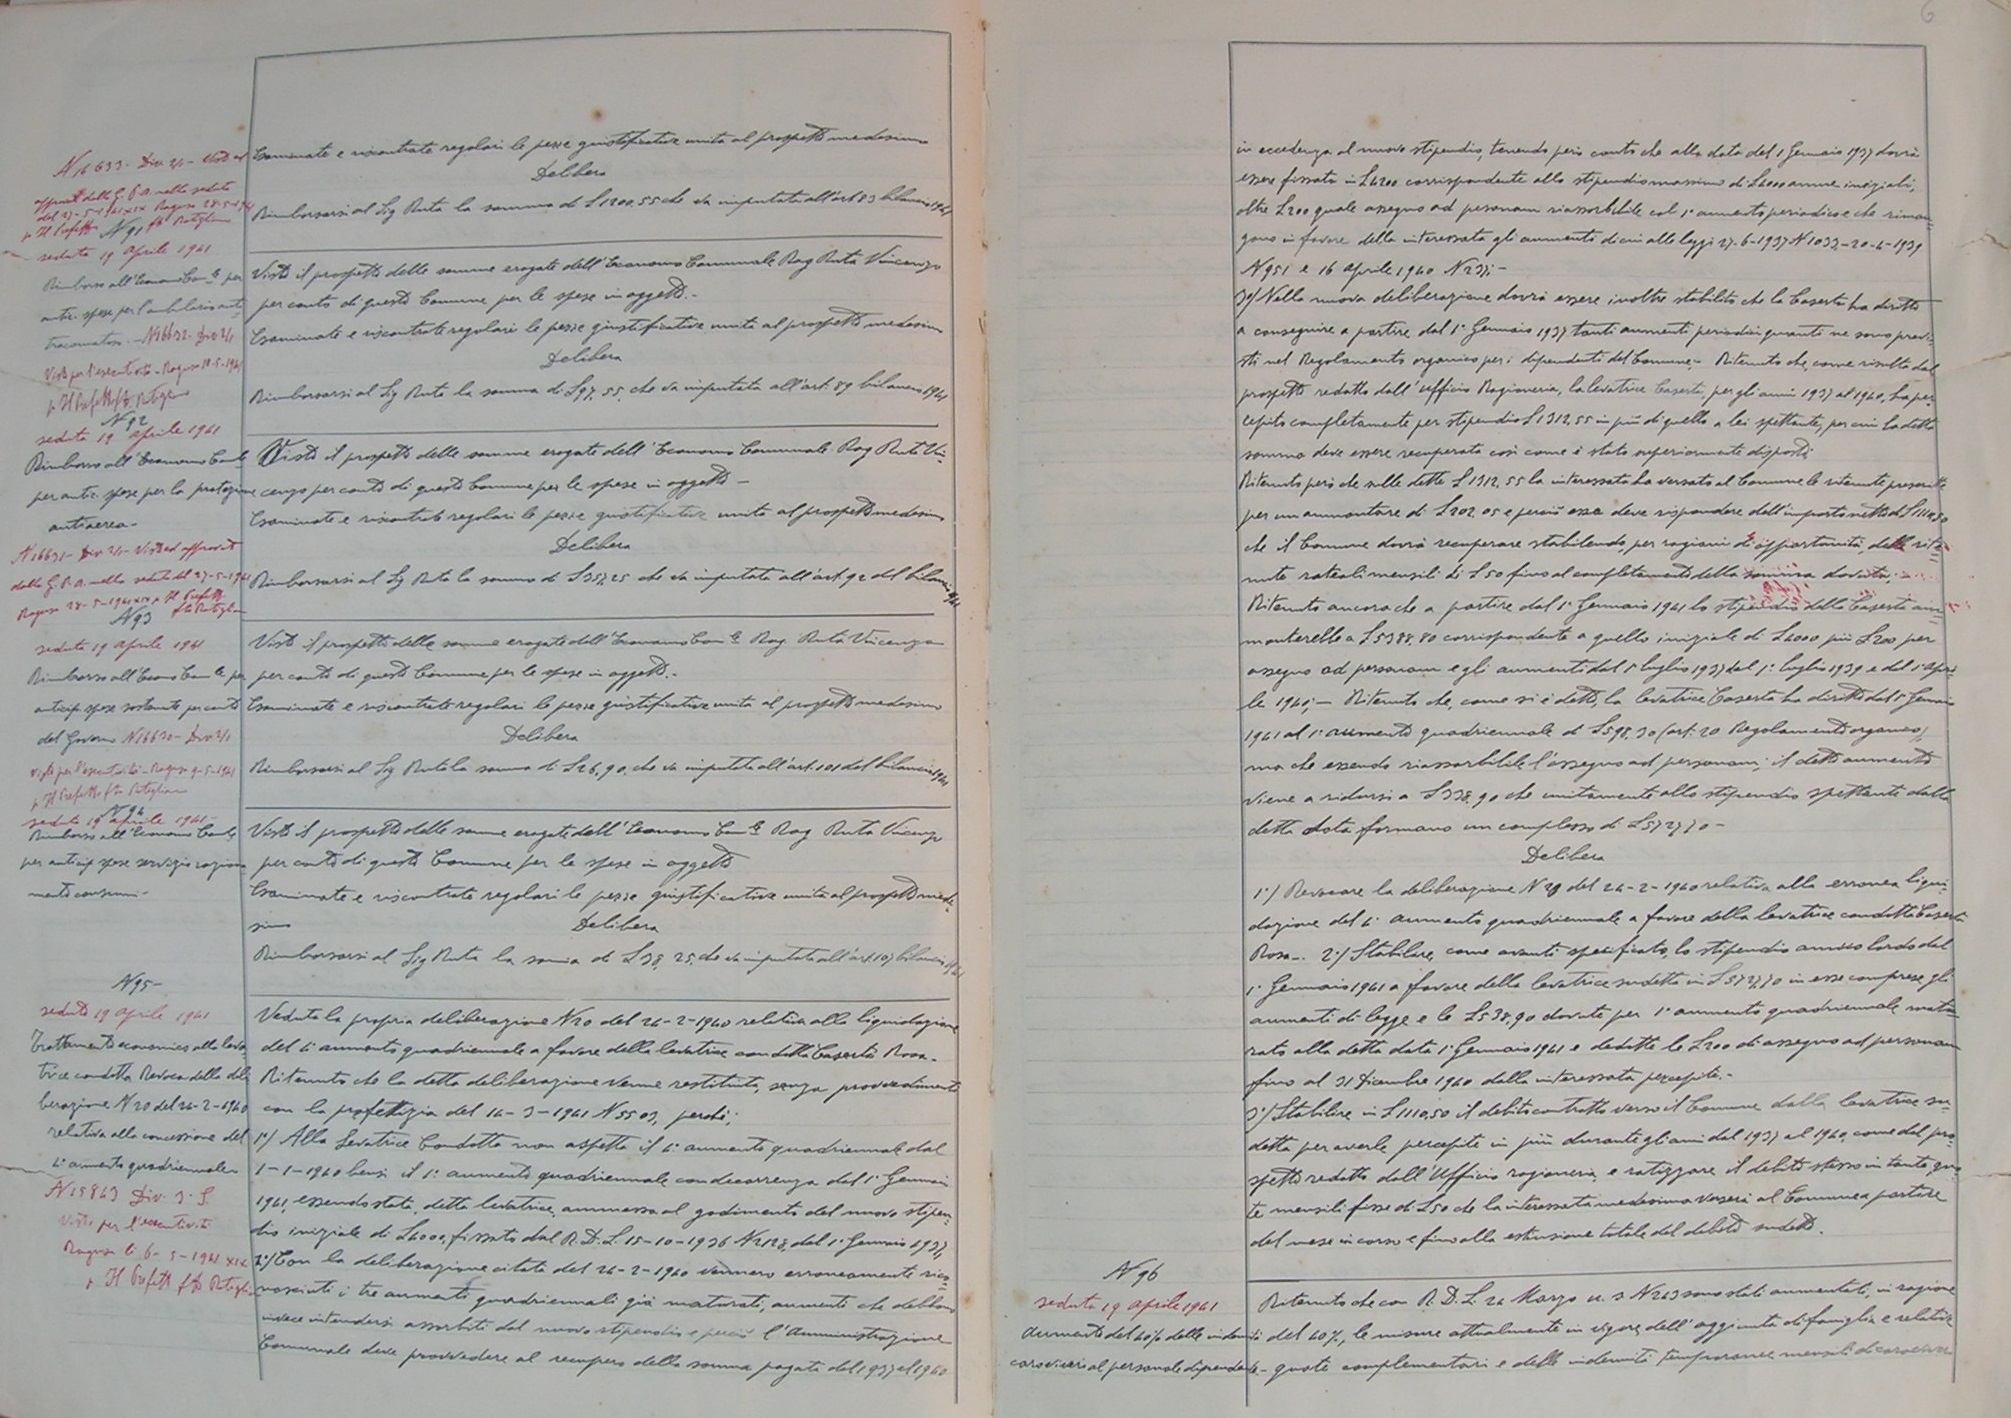 Esaminate e riscontrate regolari le pezze giustificative unite al prospetto medesimo
Delibera
Rimborsarsi al Sig Ruta la somma di £1200.55 che va imputata all'art 83 bilancio 1941
N 16633. Div 2/1 - Visto ed
approvato dalla G.P.A. nella seduta
del 27-5-1941 XIX Ragusa 28-5-1941
p Il Prefetto
N 91
seduta 19 aprile 1941
Rimborso all'Economo Com.le per
antic. spese per l'ambulatorio anti
tracomatoso. - N16632. Div 2/1
Visto per l'esecutività - Ragusa 10-5-1941
p Il Prefetto
Visto il prospetto delle somme erogate dall'Economo Comunale Rag Ruta Vincenzo
per conto di questo Comune per le spese in oggetto.-
Esaminate e riscontrate regolari le pezze giustificative unite al prospetto medesimo
Delibera
Rimborsarsi al Sig Ruta la somma di £97,55, che va imputata all'art. 89 bilancio 1941
N 92
seduta 19 aprile 1941
Rimborso all'Economo Com.le
per antic. spese per la protezione
antiaerea-
N 16631- Div 2/1- Visto ed approvato
dalla G.P.A. nella seduta del 27-5-1941
Ragusa 28-5-1941 XIX p Il Prefetto
Visto il prospetto delle somme erogate dall'Economo Comunale Rag Ruta Vin-
cenzo per conto di questo Comune per le spese in oggetto -
Esaminate e riscontrate regolari le pezze giustificative unite al prospetto medesimo
Delibera
Rimborsarsi al Sig Ruta la somma di £357,25 che va imputata all'art. 92 del bilancio 1941
N 93
seduta 19 aprile 1941
Rimborso all'Econo Com.le per
anticip. spese sostenute per conto
del Governo N16630- Div 2/1
Visto per l'esecutività - Ragusa 9-5-1941
p Il Prefetto
Visto il prospetto delle somme erogate dall'Economo Com.le Rag. Ruta Vincenzo
per conto di questo Comune per le spese in oggetto.-
Esaminate e riscontrate regolari le pezze giustificative unite al prospetto medesimo
Delibera
Rimborsarsi al Sig Ruta la somma di £26,90, che va imputata all'art. 101 del bilancio 1941
N 94
seduta 19 aprile 1941-
Rimborso all'Economo Com.le
per anticip spese servizio raziona
mento consumi-
Visto il prospetto delle somme erogate dall'Economo Com.le Rag Ruta Vincenzo
per conto di questo Comune per le spese in oggetto
Esaminate e riscontrate regolari le pezze giustificative unite al prospetto mede-
simo
Delibera
Rimborsarsi al Sig Ruta la somma di £38,25, che va imputata all'art. 107 bilancio 1941
N 95-
seduta 19 aprile 1941
Trattamento economico alla leva
trice condotta Revoca della deli
berazione N 20 del 24-2-1940
relativa alla concessione del
4° aumento quadriennale-
N 15843 Div. 3. S.
Visto per l'esecutività
Ragusa lì 6-5-1941 XIX
p Il Prefetto
Veduta la propria deliberazione N20 del 24-2-1940 relativa alla liquidazione
del 4° aumento quadriennale a favore della levatrice condotta Caserta Rosa-
Ritenuto che la detta deliberazione venne restituita, senza provvedimenti
con la prefettizia del 14-3-1941 N 5503, perchè;
1°) Alla Levatrice Condotta non aspetta il 4° aumento quadriennale dal
1-1-1940 bensì il 1° aumento quadriennale con decorrenza dal 1° Gennaio
1941, essendo stata, detta levatrice, ammessa al godimento del nuovo stipen-
dio iniziale di £4000, fissato dal R.D.L. 15-10-1936 N2128, dal 1° Gennaio 1937,
2°) Con la deliberazione citata del 24-2-1940 vennero erroneamente rico-
nosciuti i tre aumenti quadriennali già maturati, aumenti che debbono
invece intendersi assorbiti dal nuovo stipendio e perciò l'Amministrazione
Comunale deve provvedere al recupero della somma pagata dal 1937 al 1940
6
in eccedenza al nuovo stipendio, tenendo però conto che alla data del 1 Gennaio 1937 dovrà
essere fissato in £4200 corrispondente allo stipendio massimo di £4000 annue iniziali,
oltre £200 quale assegno ad personam riassorbibile col 1° aumento periodico e che riman-
gono in favore della interessata gli aumenti di cui alle leggi 27-6-1937 N 1033-20-4-1939
N 951 e 16 aprile 1940 N 237;-
3°) Nella nuova deliberazione dovrà essere inoltre stabilito che la Caserta ha diritto
a conseguire a partire dal 1° Gennaio 1937 tanti aumenti periodici quanti ne sono previ-
sti nel Regolamento organico per i dipendenti del Comune.- Ritenuto che, come risulta dal
prospetto redatto dall'Ufficio Ragioneria, la levatrice Caserta, per gli anni 1937 al 1940, ha per
cepito completamente per stipendio £1312,55 in più di quello a lei spettante, per cui la detta
somma deve essere recuperata così come è stato superiormente disposto;
Ritenuto però che sulle dette £1312,55 la interessata ha versato al Comune le ritenute
per un ammontare di £202.05 e perciò essa deve rispondere dell'importo netto di £1110,50
che il Comune dovrà recuperare stabilendo, per ragioni di opportunità, delle rite-
nute rateali mensili di £50 fino al completamento della somma dovuta;-
Ritenuto ancora che a partire dal 1° Gennaio 1941 lo stipendio della Caserta am-
monterebbe a £5388,80 corrispondente a quello iniziale di £4000 più £200 per
assegno ad personam e gli aumenti dal 1° luglio 1937 dal 1° luglio 1939 e dal 1° apri-
le 1940;- Ritenuto che, come si è detto, la levatrice Caserta ha diritto dal 1° Gennaio
1941 al 1° aumento quadriennale di £598,90 (art. 20 Regolamento organico)
ma che essendo riassorbibile l'assegno ad personam, il detto aumento
viene a ridursi a £338,90 che unitamente allo stipendio spettante dalla
detta data formano un complesso di £5727,70-
Delibera
1°) Revocare la deliberazione N 20 del 24-2-1940 relativa alla erronea liqui-
dazione del 4° aumento quadriennale a favore della levatrice condotta Caserta
Rosa-. 2°) Stabilire, come avanti specificato, lo stipendio annuo lordo dal
1° Gennaio 1941 a favore della levatrice sudetta in £5727,70 in esse comprese gli
aumenti di legge e le £538,90 dovute per 1° aumento quadriennale matu-
rato alla detta data 1° Gennaio 1941 e dedotte le £200 di assegno ad personam
fino al 31 Dicembre 1940 dalla interessata percepite.-
3°) Stabilire in £1110,50 il debito contratto verso il Comune dalla levatrice su-
detta per averle percepite in più durante gli anni dal 1937 al 1940, come dal pro-
spetto redatto dall'Ufficio ragioneria e ratizzare il debito stesso in tante quo-
te mensili fisse di £50 che la interessata medesima verserà al Comune a partire
dal mese in corso e fino alla estinzione totale del debito sudetto.
N 96
seduta 19 aprile 1941
Aumento del 40% delle indennità
caroviveri al personale dipendente-
Ritenuto che con R.D.L. 24 Marzo u. s N 243 sono stati aumentati, in ragione
del 40%, le misure attualmente in vigore, dell'aggiunta di famiglia e relative
quote complementari e delle indennità temporanee mensili di caroviveri